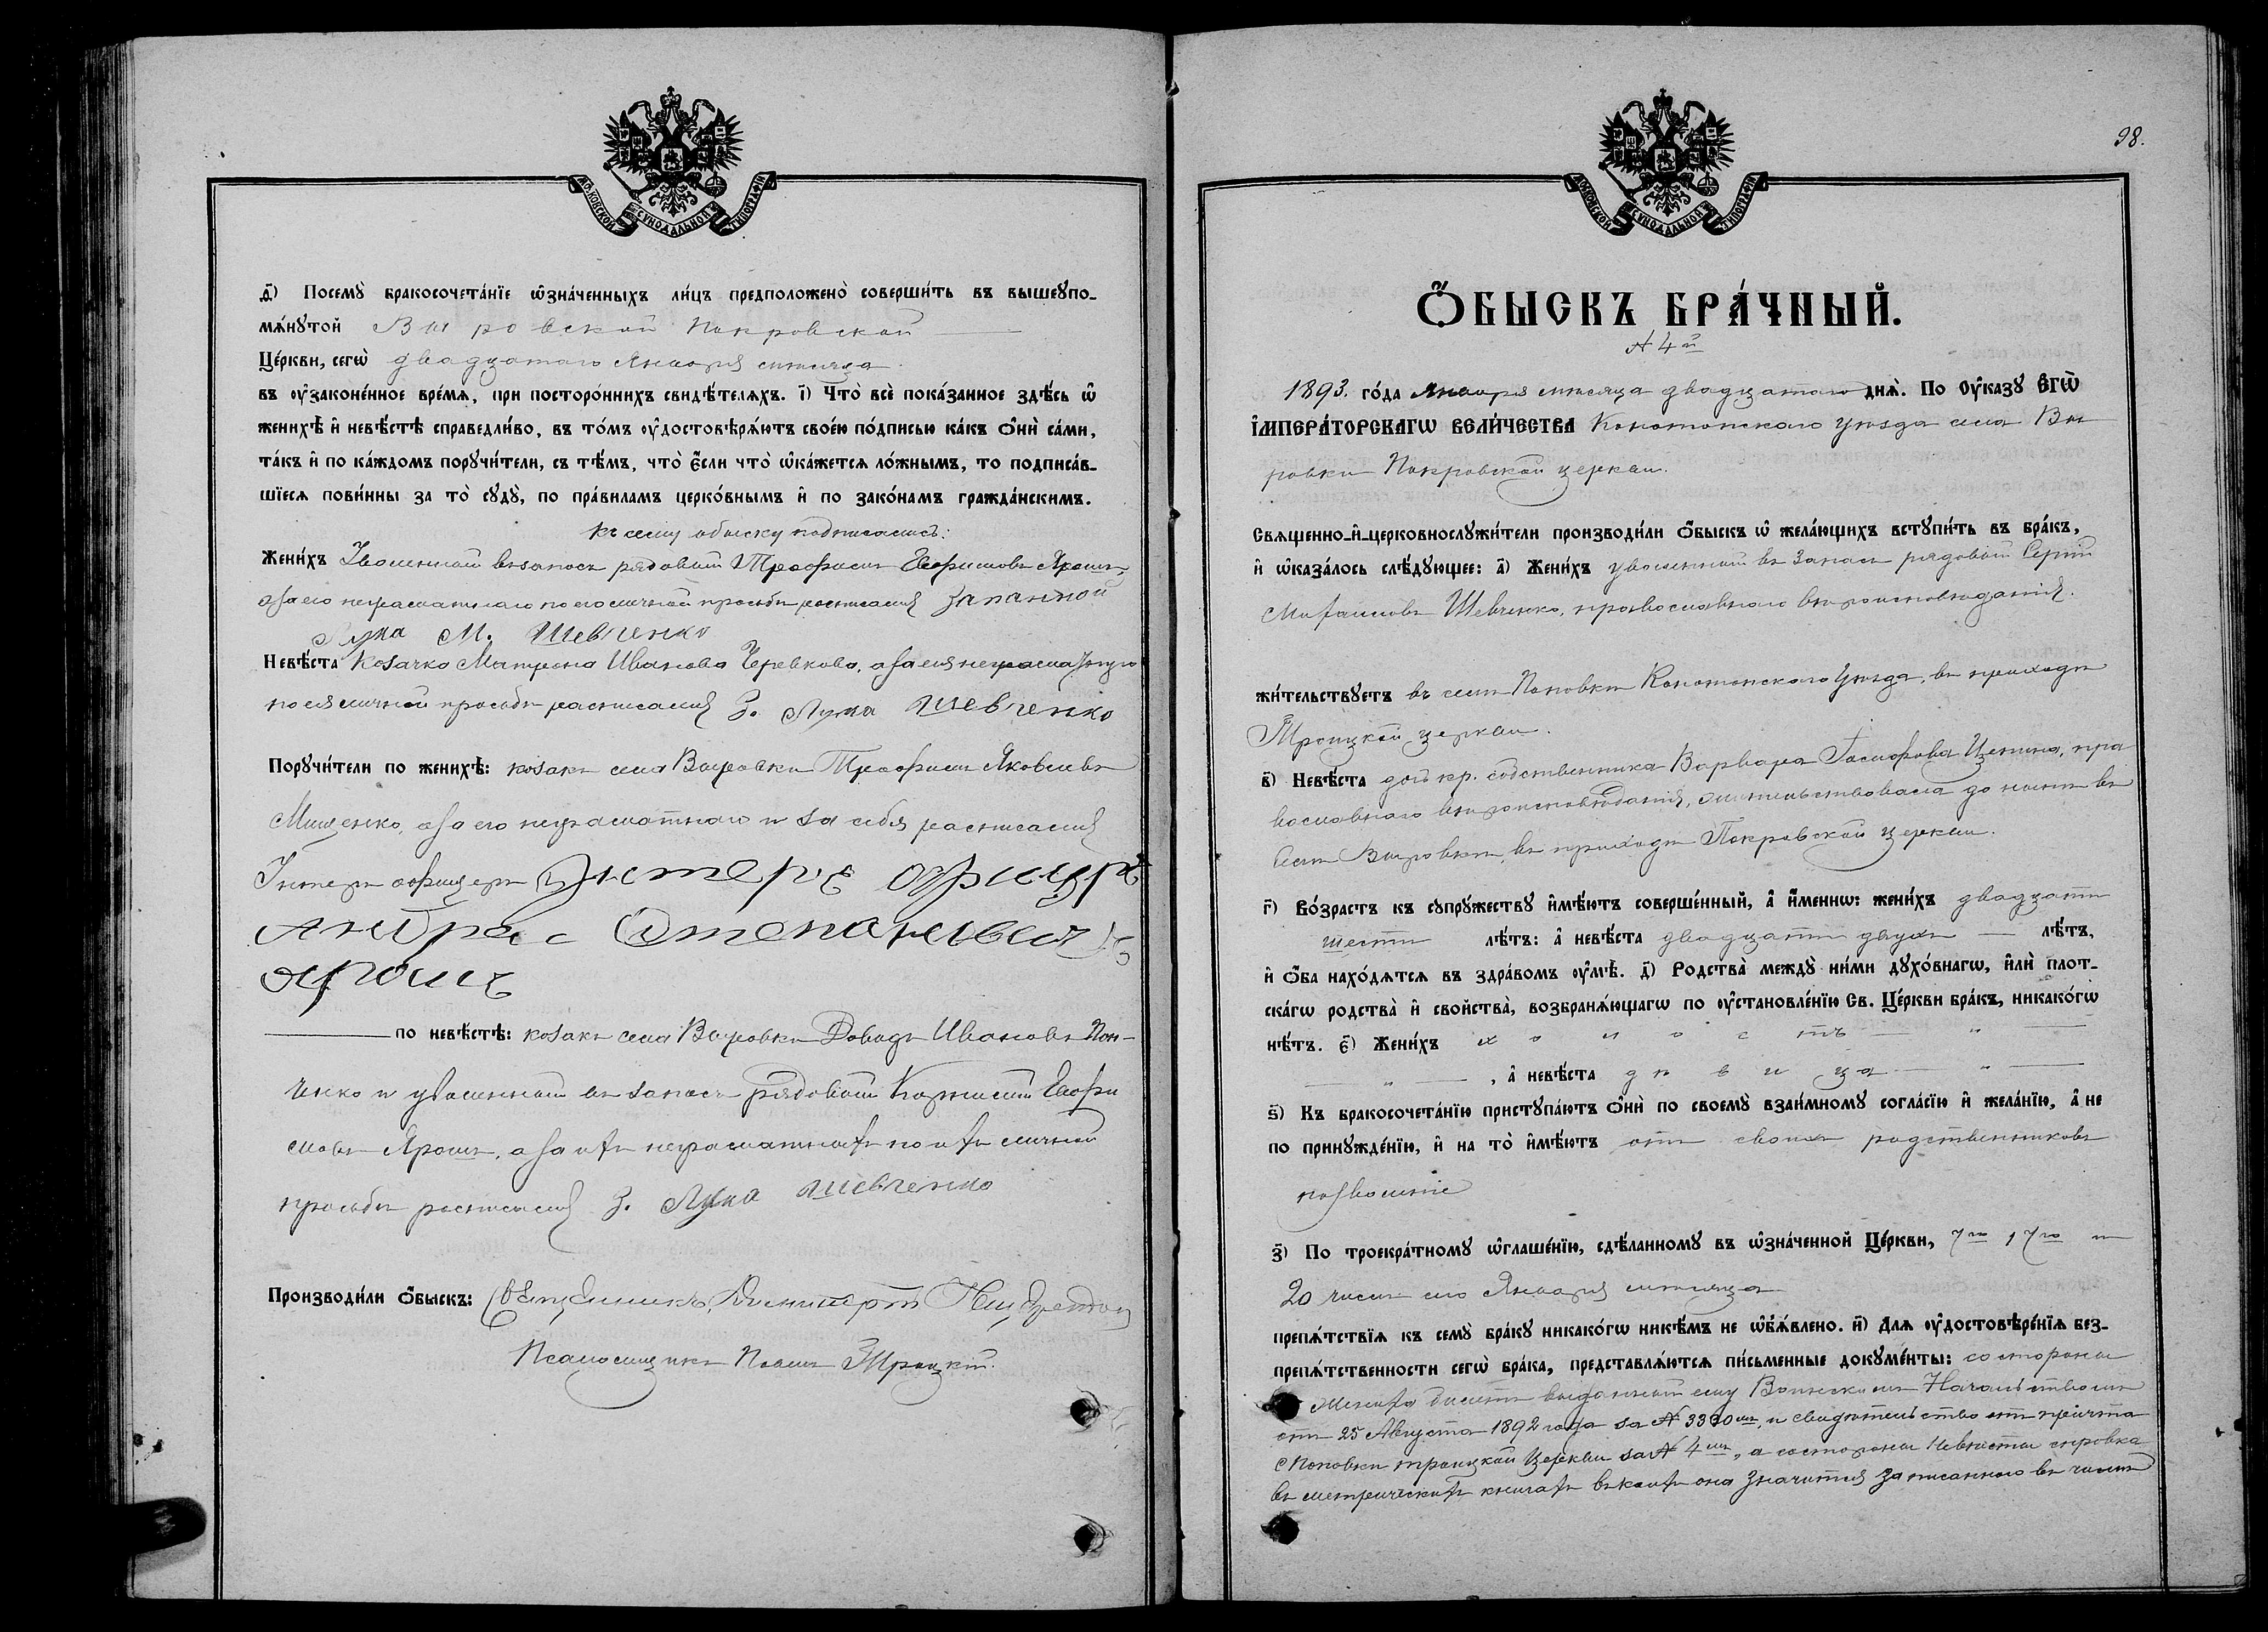 МОСКОВСКОЙ СѴНОДАЛЬНОЙ ТИПОГРАФІИ
д҃) Посемꙋ̀ бракосочета́нїе ѡ҆зна́ченныхъ ли́цъ предположено̀ соверши́ть въ вышеꙋпо-
мѧ́нꙋтой Выровской Покровской
Це́ркви, сегѡ̀ двадцатого Января мѣсяца.
въ ᲂу҆законе́нное вре́мѧ, при посторо́ннихъ свидѣ́телѧхъ. і҃) Что̀ всѐ пока́занное здѣ́сь ѡ҆
женихѣ̀ и҆ невѣ́стѣ справедли́во, въ то́мъ ᲂу҆достовѣрѧ́ютъ свое́ю по́дписью ка́къ ѻ҆нѝ са́ми,
та́къ и҆ по ка́ждомъ порꙋчи́тели, съ тѣ́мъ, что̀ є҆́сли что̀ ѡ҆ка́жетсѧ ло́жнымъ, то подписа́в-
шїесѧ пови́нны за то̀ сꙋдꙋ̀, по пра́виламъ церко́внымъ и҆ по зако́намъ гражда́нскимъ.
къ сему обыску подписались:
Жени́хъ Уволенный въ запасъ рядовый Трофимъ Евфимовъ Ярошъ,
а за его неграмотнаго по его личной просьбѣ росписался запасной
Лука М. Шевченко
Невѣ́ста козачка Матрона Иванова Черевкова, а за ея неграмотную
по ея личной просьбѣ росписался З. Лука Шевченко
Порꙋчи́тели по женихѣ̀: козакъ села Выровки Трофимъ Яковлевъ
Мищенко, а за его неграмотнаго и за себя росписался
Унтеръ офицеръ Унтеръ офицеръ
Андрей Степановичъ
Ярошъ
по невѣ́стѣ: козакъ села Выровки Давидъ Ивановъ Поп-
ченко и уволенный въ запасъ рядовый Корнилій Евфи
мовъ Ярошъ, а за ихъ неграмотныхъ по ихъ личной
просьбѣ росписался З. Лука Шевченко
Производи́ли ѻ҆́быскъ: Священникъ
Псаломщикъ Павелъ Троцкій.
98.
МОСКОВСКОЙ СѴНОДАЛЬНОЙ ТИПОГРАФІИ
Ѻ҆́БЫСКЪ БРА́ЧНЫЙ.
№ 4й
1893. го́да Января мѣсяца двадцатаго днѧ̀. По Оу҆ка́зꙋ Є҆гѡ̀
І҆мпера́торскагѡ Вели́чества Конотопскаго уѣзда села Вы
ровки Покровской церкви.
Свѧщенно-и҆-церковнослꙋжи́тели производи́ли ѻ҆́быскъ ѡ҆ жела́ющихъ встꙋпи́ть въ бра́къ,
и҆ ѡ҆каза́лось слѣ́дꙋющее: а҃) Жени́хъ уволенный въ запасъ рядовый Сергій
Михаиловъ Шевченко, православнаго вѣроисповѣданія.
жи́тельствꙋетъ въ селѣ Поповкѣ Конотопскаго Уѣзда, въ приходѣ
Троицкой церкви.
в҃) Невѣ́ста дочь кр. собственника Варвара Іосифова Цепина, пра
вославнаго вѣроисповѣданія, жительствовала до нынѣ въ
селѣ Выровкѣ, въ приходѣ Покровской церкви.
г҃) Во́зрастъ къ сꙋпрꙋ́жествꙋ и҆мѣ́ютъ соверше́нный, а҆ и҆́меннѡ: жени́хъ двадцати
шести лѣ́тъ: а҆ невѣ́ста двадцати двухъ — лѣ́тъ,
и҆ ѻ҆́ба нахо́дѧтсѧ въ здра́вомъ ᲂу҆мѣ̀. д҃) Родства̀ междꙋ̀ ни́ми дꙋхо́внагѡ, и҆лѝ плот-
ска́гѡ родства̀ и҆ сво́йства, возбранѧ́ющагѡ по ᲂу҆становле́нїю Св. Це́ркви бра́къ, никако́гѡ
нѣ́тъ. є҃) Жени́хъ холостъ — „ —
— „ — , а҆ невѣ́ста дѣвица — „ —
ѕ҃) Къ бракосочета́нїю пристꙋпа́ютъ ѻ҆нѝ по своемꙋ̀ взаи́мномꙋ согла́сїю и҆ жела́нїю, а҆ не
по принꙋжде́нїю, и҆ на то̀ и҆мѣ́ютъ отъ своихъ родственниковъ
позволеніе
з҃) По троекра́тномꙋ ѡ҆глаше́нїю, сдѣ́ланномꙋ въ ѡ҆зна́ченной Це́ркви, 7го 17го и
20 чиселъ сего Января мѣсяца
препѧ́тствїѧ къ семꙋ̀ бра́кꙋ никако́гѡ никѣ́мъ не ѡ҆б̾ѧ́влено. и҃) Для ᲂу҆достовѣре́нїѧ без-
препѧ́тственности сегѡ̀ бра́ка, представлѧ́ютсѧ пи́сьменные докꙋме́нты: со стороны
Жениха билетъ выданный ему Воинскимъ Начальствомъ
отъ 25 Августа 1892 года за № 3390мъ, и свидѣтельство отъ причта
с Поповки троицкой Церкви за № 4мъ, а со стороны Невѣсты справка
въ метрическихъ книгахъ въ коихъ она значится записанною въ числѣ